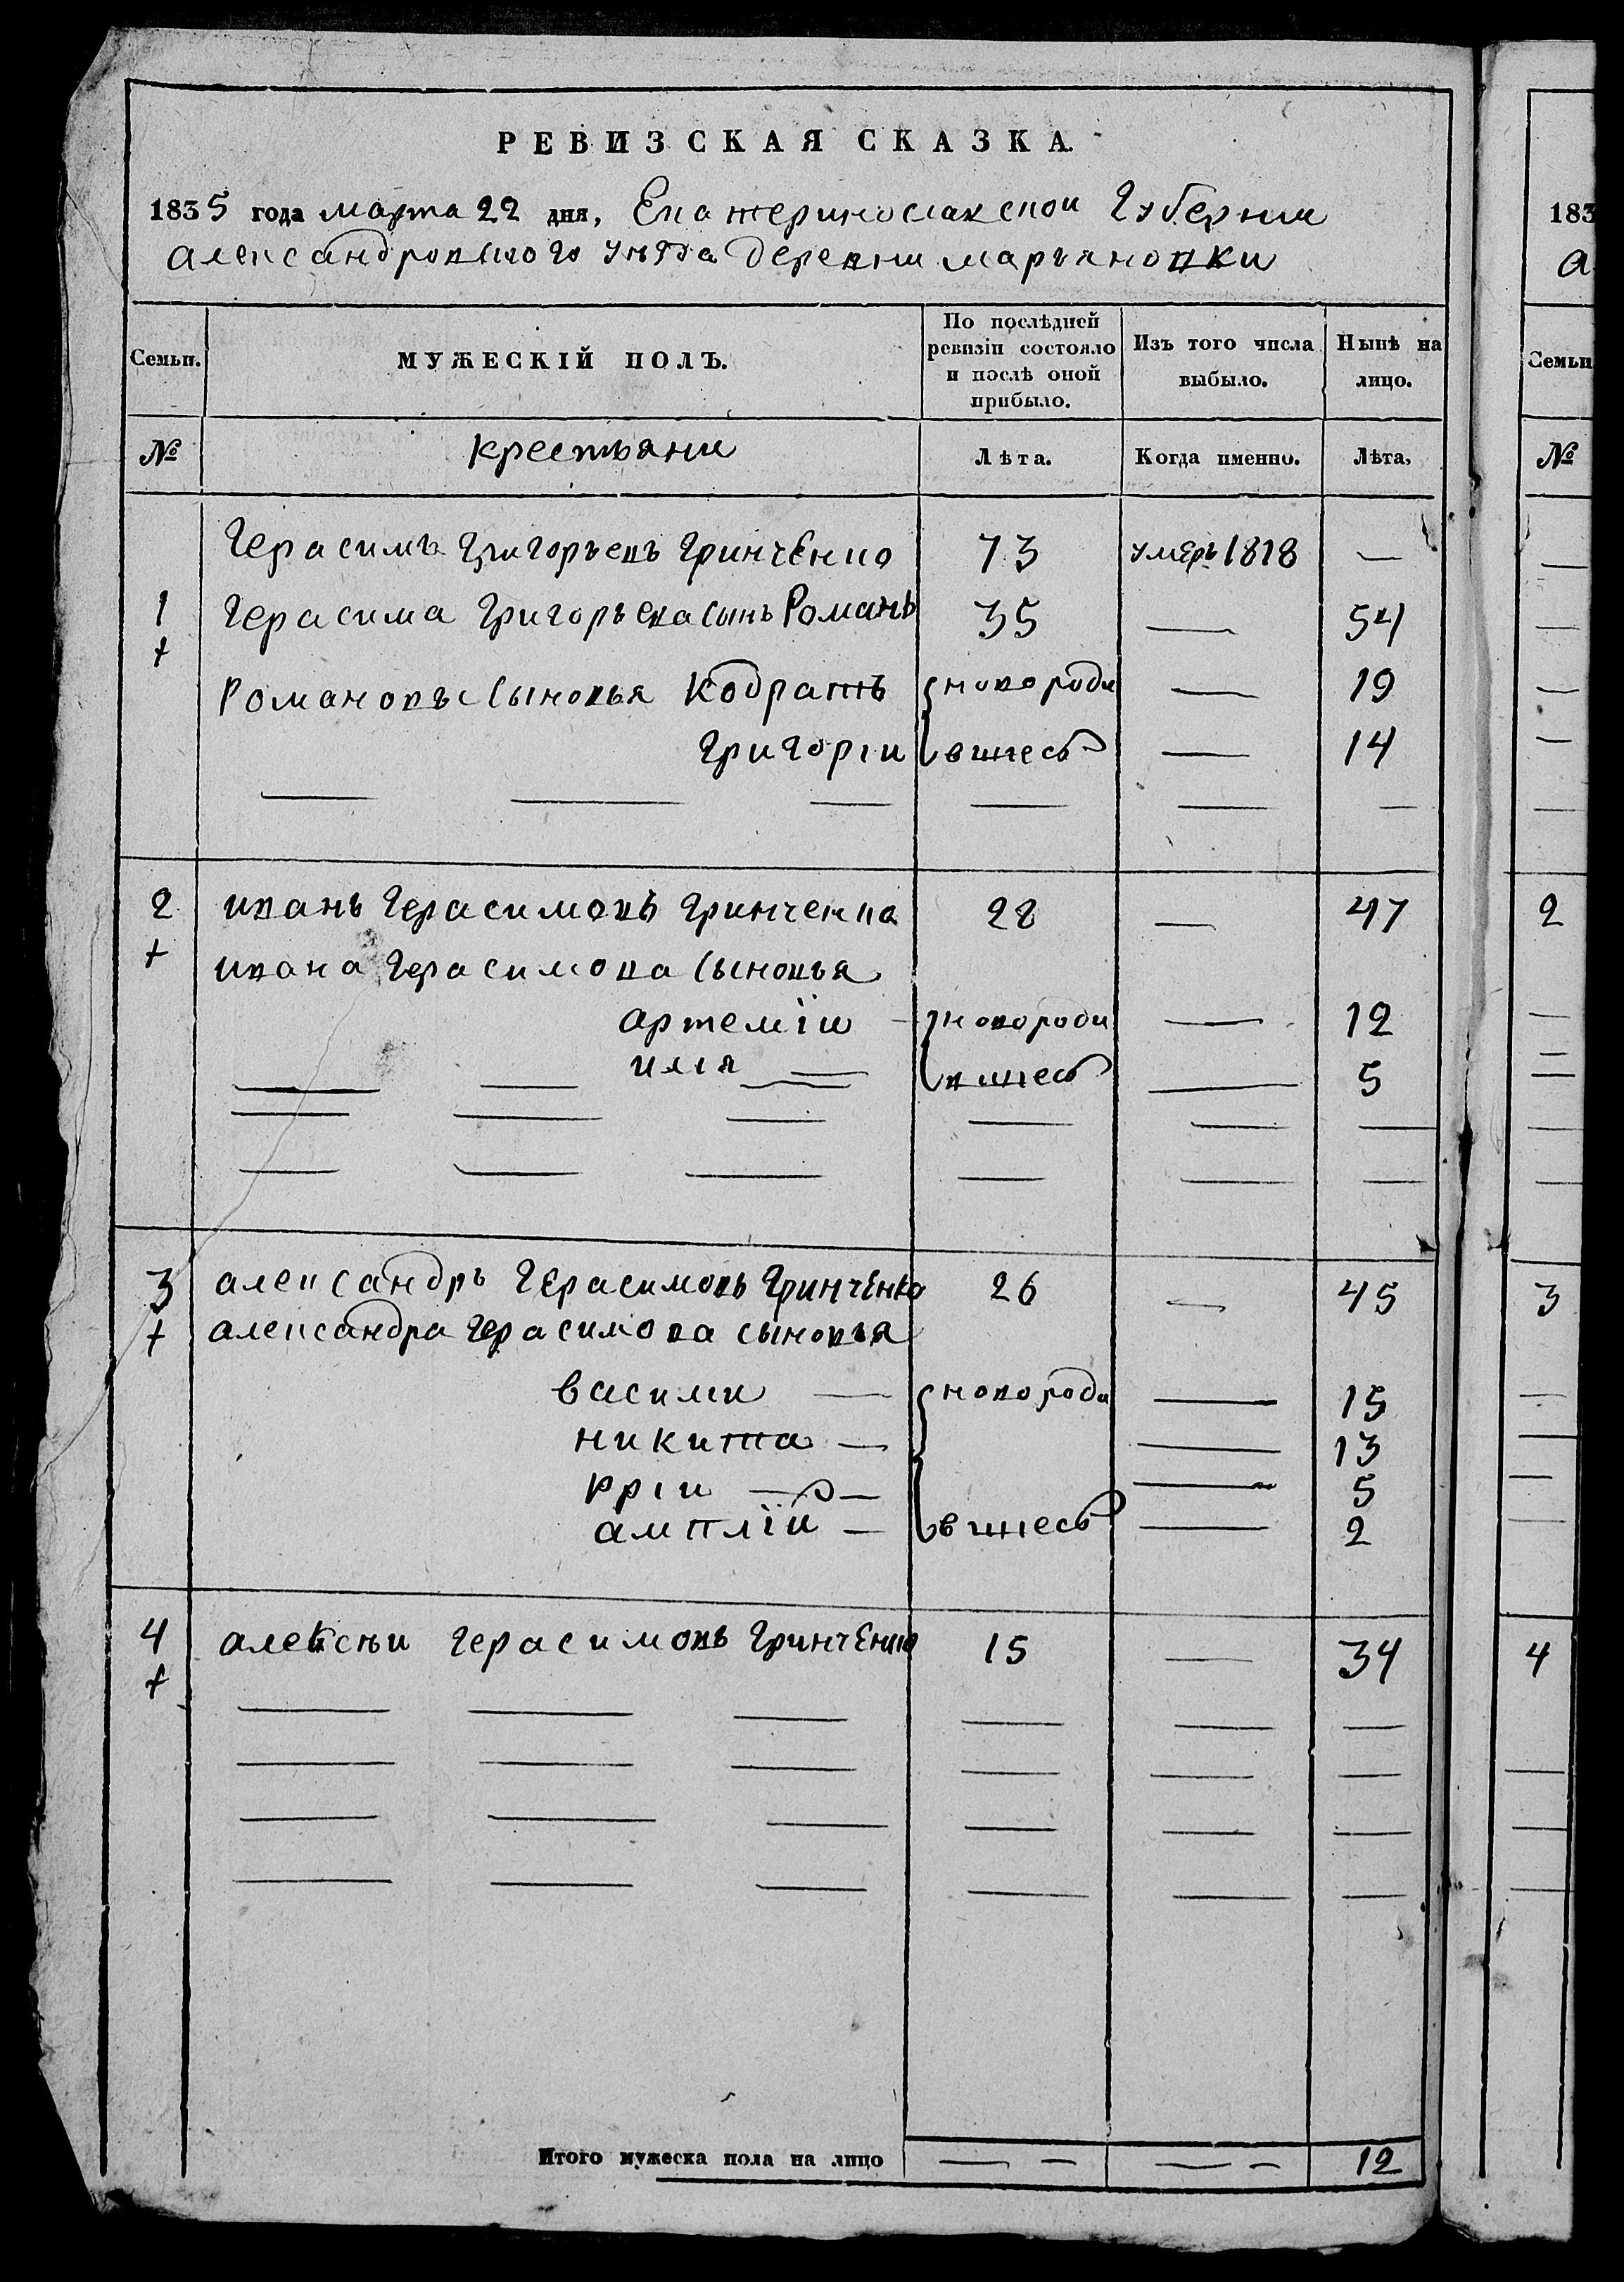 РЕВИЗСКАЯ СКАЗКА.
1835 года марта 22 дня, Екатеринославской Губернии
александровского уѣзда деревни марьяновки
Семьи. МУЖЕСКІЙ ПОЛЪ. По послѣдней ревизіи состояло и послѣ оной прибыло. Изъ того числа выбыло. Нынѣ на лицо.
№ крестьяни Лѣта. Когда именно. Лѣта,
Герасимъ Григорьевъ Гринченко 73 умеръ 1818 —
1 Герасима Григорьева сынъ Романъ 35 — 54
+
Романовы сыновья Кодратъ новороди — 19
Григоріи вшиесь — 14
2 иванъ Герасимовъ Гринченка 28 — 47
+
ивана Герасимова сыновья
артемїи — новороди — 12
илія — вшиесь — 5
3 александръ Герасимовъ Гринченко 26 — 45
+ александра Герасимова сыновья
василии — новороди — 15
никита — — 13
ріи — — 5
амплїи — вшиесь — 2
4 алексѣи Герасимовъ Гринченко 15 — 34
+
Итого мужеска пола на лицо — — — — 12
183
а
Семьи
№
2
3
4